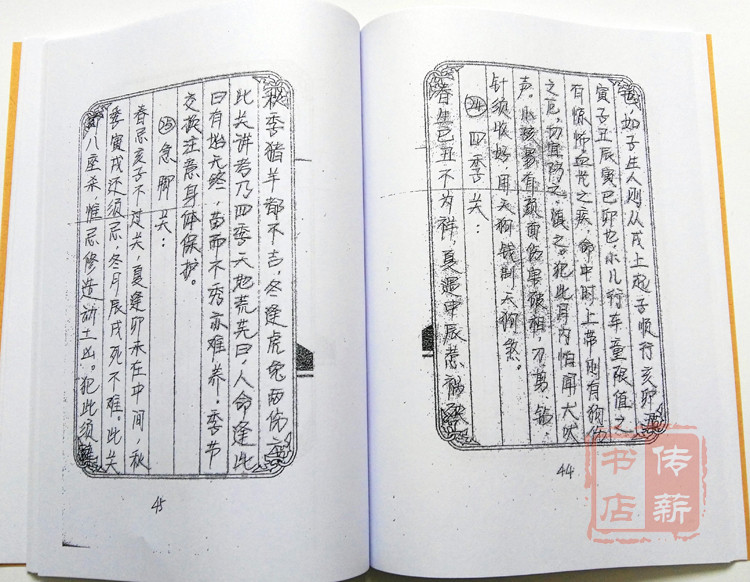 如子生人则从戌上起子顺行亥卯
寅子丑辰寅巳卯也小儿行车童限值之
有惊怖血光之疾，命中时上带则有狗伤
之厄，切宜防之，慎之。犯此耳内怕闻犬吠
声，小孩易有颜面伤鼻破相，刀剪钻，
针须收好用天狗钱制天狗煞。
㉔四季关：
春生巳丑不为祥，夏遇申辰惹祸殃
44
秋季猪羊都不吉，冬逢虎兔两伤亡
此关讲者乃四季天地荒芜日，人命逢此
日有始无终，苗而不秀亦难养。季节
交换注意身体保护。
㉕急脚关：
春忌亥子不过关，夏逢卯未在中间，秋
季寅戌还须忌，冬月辰戌死不难。此关
即八座杀，惟忌修造动土凶。犯此须
45
传薪
书店